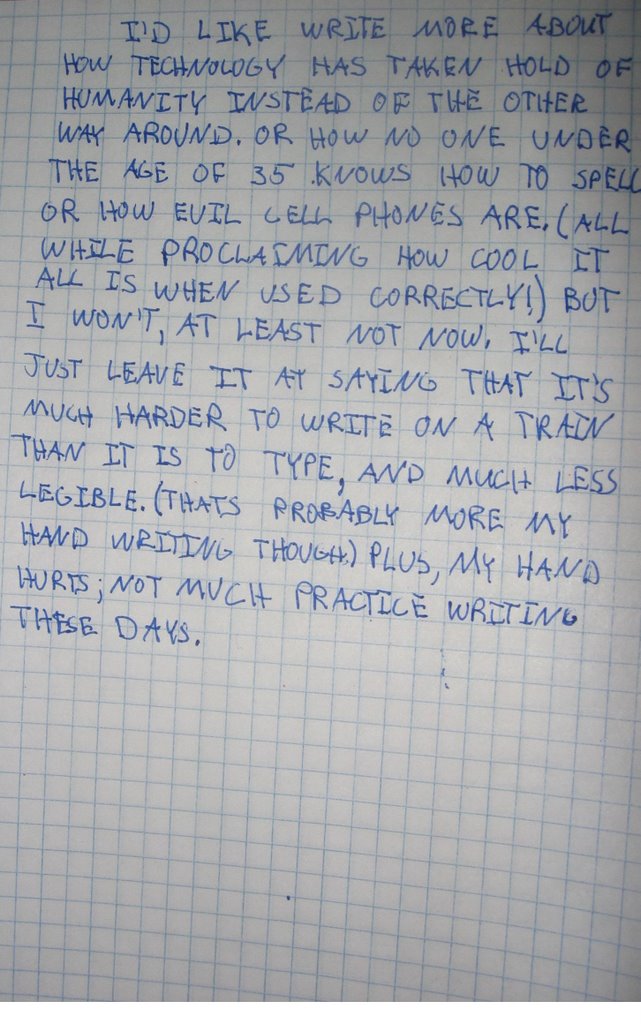 I'D LIKE WRITE MORE ABOUT
HOW TECHNOLOGY HAS TAKEN HOLD OF
HUMANITY INSTEAD OF THE OTHER
WAY AROUND. OR HOW NO ONE UNDER
THE AGE OF 35 KNOWS HOW TO SPELL
OR HOW EVIL CELL PHONES ARE. (ALL
WHILE PROCLAIMING HOW COOL IT
ALL IS WHEN USED CORRECTLY!) BUT
I WON'T, AT LEAST NOT NOW. I'LL
JUST LEAVE IT AT SAYING THAT IT'S
MUCH HARDER TO WRITE ON A TRAIN
THAN IT IS TO TYPE, AND MUCH LESS
LEGIBLE. (THATS PROBABLY MORE MY
HAND WRITING THOUGH.) PLUS, MY HAND
HURTS; NOT MUCH PRACTICE WRITING
THESE DAYS.